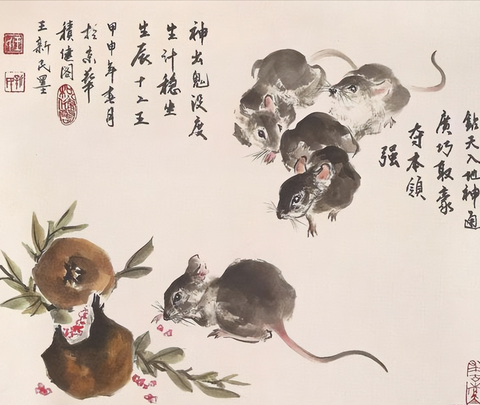 鑽天入地神通
廣巧取豪
夺本領
强
神出鬼没度
生計稳坐
生辰十二王
甲申年春月
於京華
積健阁
王新民墨